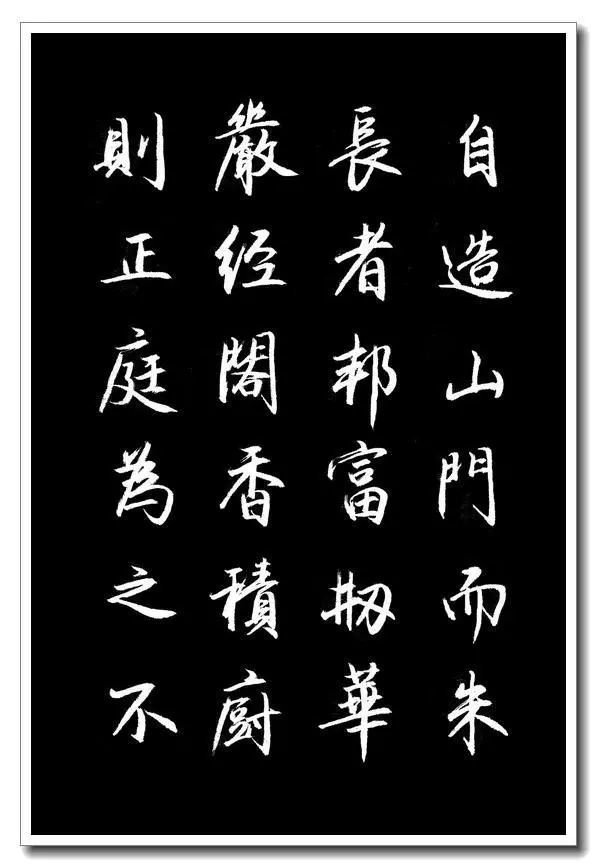 自造山門而朱
長者邦富刱華
嚴经閣香積廚
則正庭為之不